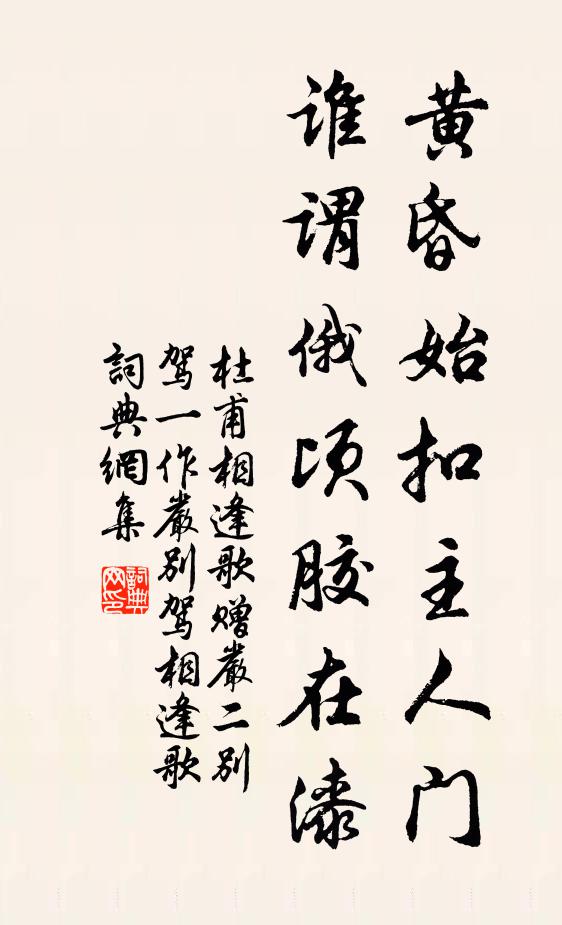 黄昏始扣主人门
谁谓俄顷胶在漆
杜甫相逢歌赠严二别
驾一作严别驾相逢歌
词典网集
词典网印